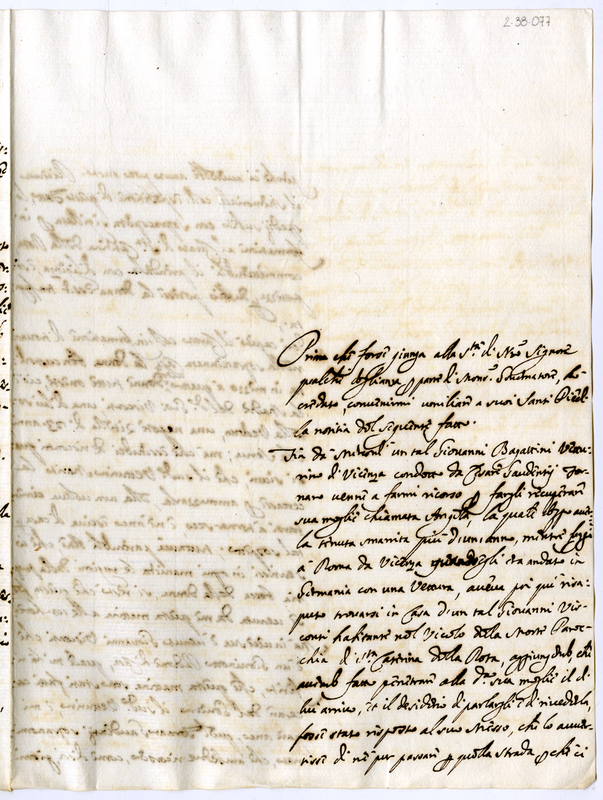 2-38-077
Prima che forse giunga alla S.tà di N.ro Signore
qualche doglianza per parte di Mons.r
creduto convenirmi umiliare a suoi Santi Piedi
la notitia del seguente fatto.
Fin da un tal Giovanni Bagattini Vettu
rino di Vicenza condotto da Cesare For
naro venne a farmi ricorso per fargli recuperare
sua moglie chiamata Angela, la quale dopo aver
la tenuta smarrita più d'un anno, mentre fuggì
a Roma da Vicenza quando egli era andato in
Germania con una Vettura, aveva poi qui risa
puto trovarsi in Casa d'un tal Giovanni Vis
conti habitante nel Vicolo della Morte Paroc
chia di S.ta Caterina della Rota, aggiungendo, che
avendo fatto penetrare alla d.a sua moglie il di
lui arrivo, et il desiderio di parlargli e di rivederla,
fosse stato risposto al suo stesso, che lo avver
tisse di né per passare per quella strada perche ci